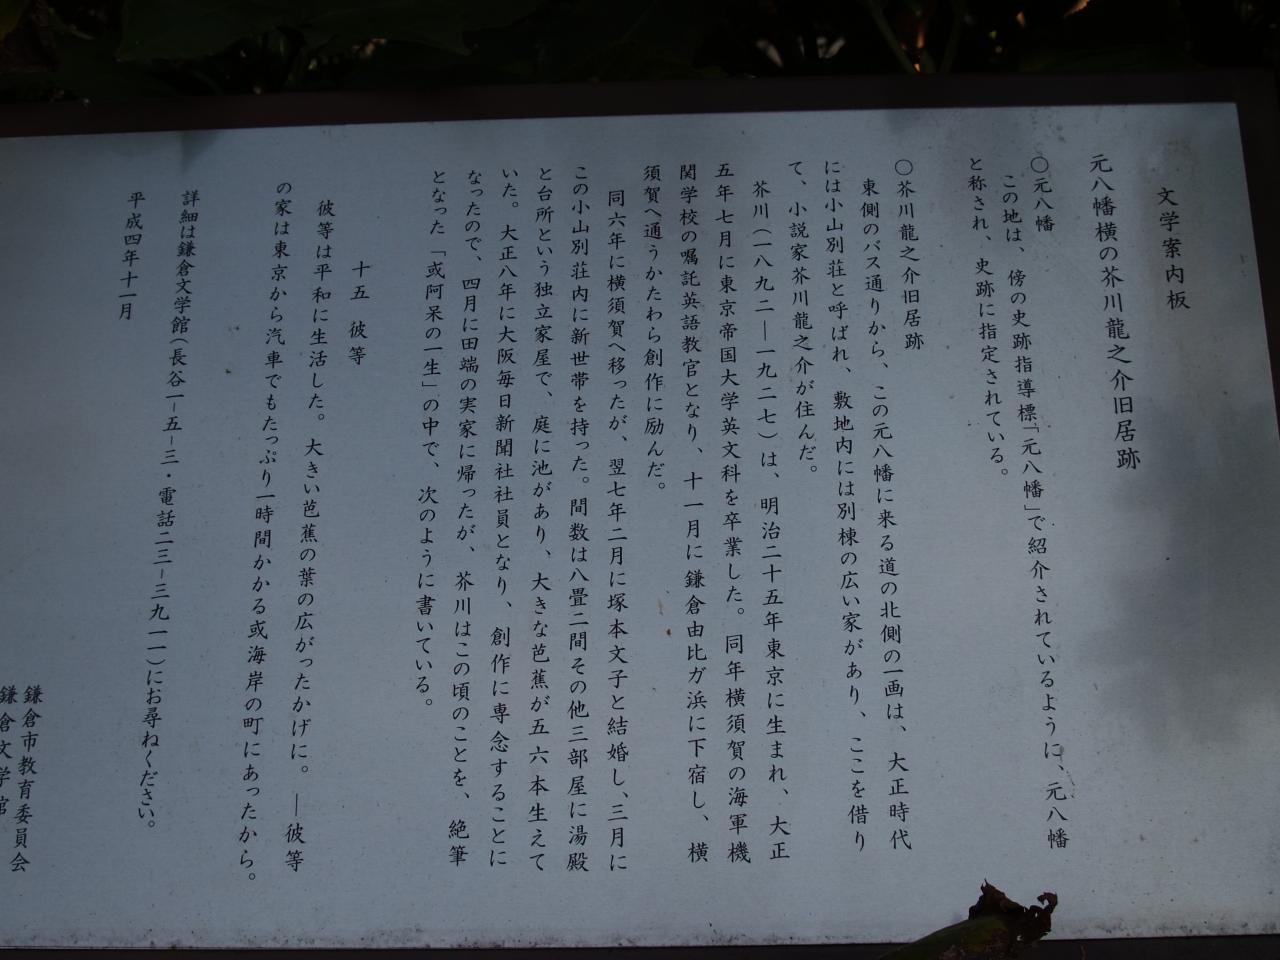 文学案内板
元八幡横の芥川龍之介旧居跡
〇元八幡
この地は、傍の史跡指導標「元八幡」で紹介されているように、元八幡
と称され、史跡に指定されている。
〇芥川龍之介旧居跡
東側のバス通りから、この元八幡に来る道の北側の一画は、大正時代
には小山別荘と呼ばれ、敷地内には別棟の広い家があり、ここを借り
て、小説家芥川龍之介が住んだ。
芥川（一八九二―一九二七）は、明治二十五年東京に生まれ、大正
五年七月に東京帝国大学英文科を卒業した。同年横須賀の海軍機
関学校の嘱託英語教官となり、十一月に鎌倉由比ガ浜に下宿し、横
須賀へ通うかたわら創作に励んだ。
同六年に横須賀へ移ったが、翌七年二月に塚本文子と結婚し、三月に
この小山別荘内に新世帯を持った。間数は八畳二間その他三部屋に湯殿
と台所という独立家屋で、庭に池があり、大きな芭蕉が五六本生えて
いた。大正八年に大阪毎日新聞社社員となり、創作に専念することに
なったので、四月に田端の実家に帰ったが、芥川はこの頃のことを、絶筆
となった「或阿呆の一生」の中で、次のように書いている。
十五 彼等
彼等は平和に生活した。大きい芭蕉の葉の広がったかげに。―彼等
の家は東京から汽車でもたっぷり一時間かかる或海岸の町にあったから。
詳細は鎌倉文学館（長谷一−五−三・電話二三−三九一一）にお尋ねください。
平成四年十一月
鎌倉市教育委員会
鎌倉文学館